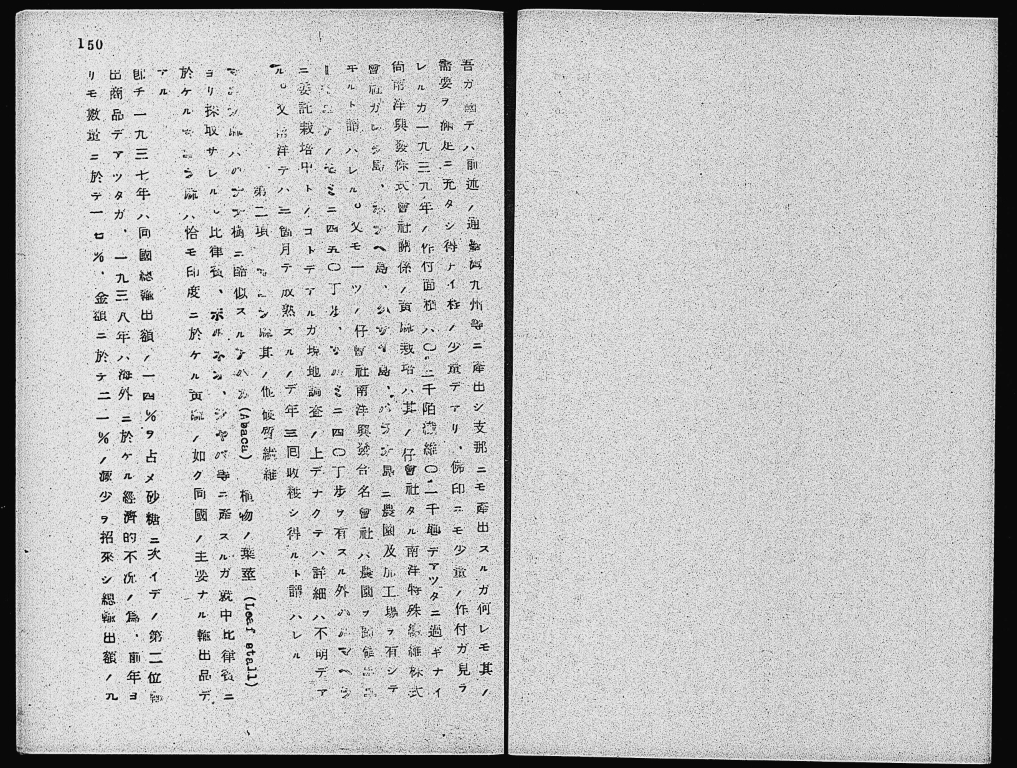 150
吾ガ國デハ前述ノ通臺灣九州等ニ産出シ支那ニモ産出スルガ何レモ其ノ
需要ヲ補足ニ充タシ得ナイ程ノ少量デアリ、佛印ニモ少量ノ作付ガ見ラ
レルガ一九三九年ノ作付面積ハ〇、二千陌纖維〇、一千瓲デアツタニ過ギナイ
尚南洋興發株式會社關係ノ黄麻栽培ハ其ノ仔會社タル南洋特殊纖維株式
會社ガ 島、 島、 島ニ農園及加工場ヲ有シテ
ヰルト謂ハレル。又モ一ツノ仔會社南洋興發合名會社ハ農園ヲ
ニ四五〇丁歩、 ニ四〇丁歩ヲ有スル外
ニ委託栽培中トノコトデアルガ現地調査ノ上デナクテハ詳細ハ不明デア
ル。又南洋デハ三箇月デ成熟スルノデ年三回收穫シ得ルト謂ハレル
第二項 マニラ麻其ノ他硬質纖維
マニラ麻ハ ニ酷似スル (Abaca) 植物ノ葉莖 (Leaf stall)
ヨリ採取サレル。比律賓、ボルネオ、 等ニ産スルガ就中比律賓ニ
於ケルマニラ麻ハ恰モ印度ニ於ケル黄麻ノ如ク同國ノ主要ナル輸出品デ
アル
即チ一九三七年ハ同國總輸出額ノ一四%ヲ占メ砂糖ニ次イデノ第二位輸
出商品デアツタガ、一九三八年ハ海外ニ於ケル經濟的不況ノ爲、前年ヨ
リモ數量ニ於テ一七%、金額ニ於テ二一%ノ減少ヲ招來シ總輸出額ノ九